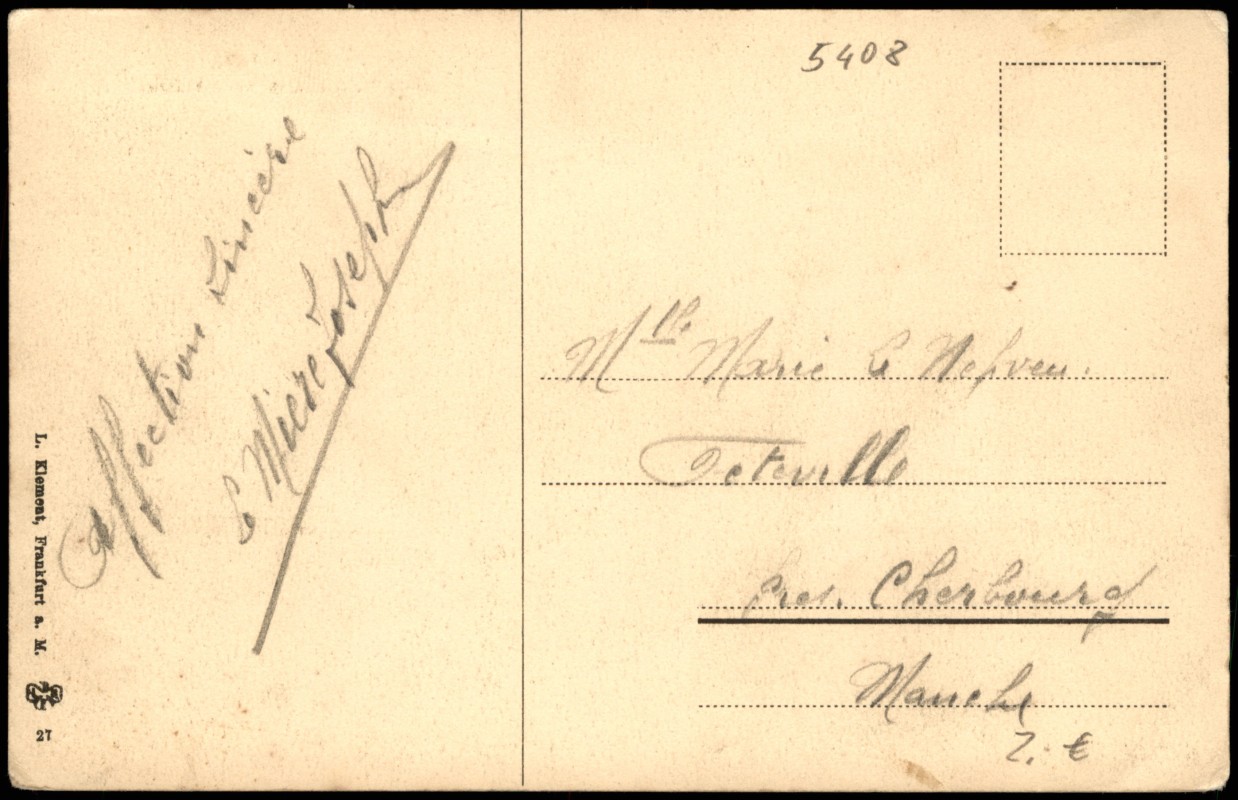 5408
Affection Sincère
Le Mière Joseph
Mlle Marie Le Nepveu.
Teteville
près. Cherbourg
Manche
2. €
L. Klement, Frankfurt a. M.
27